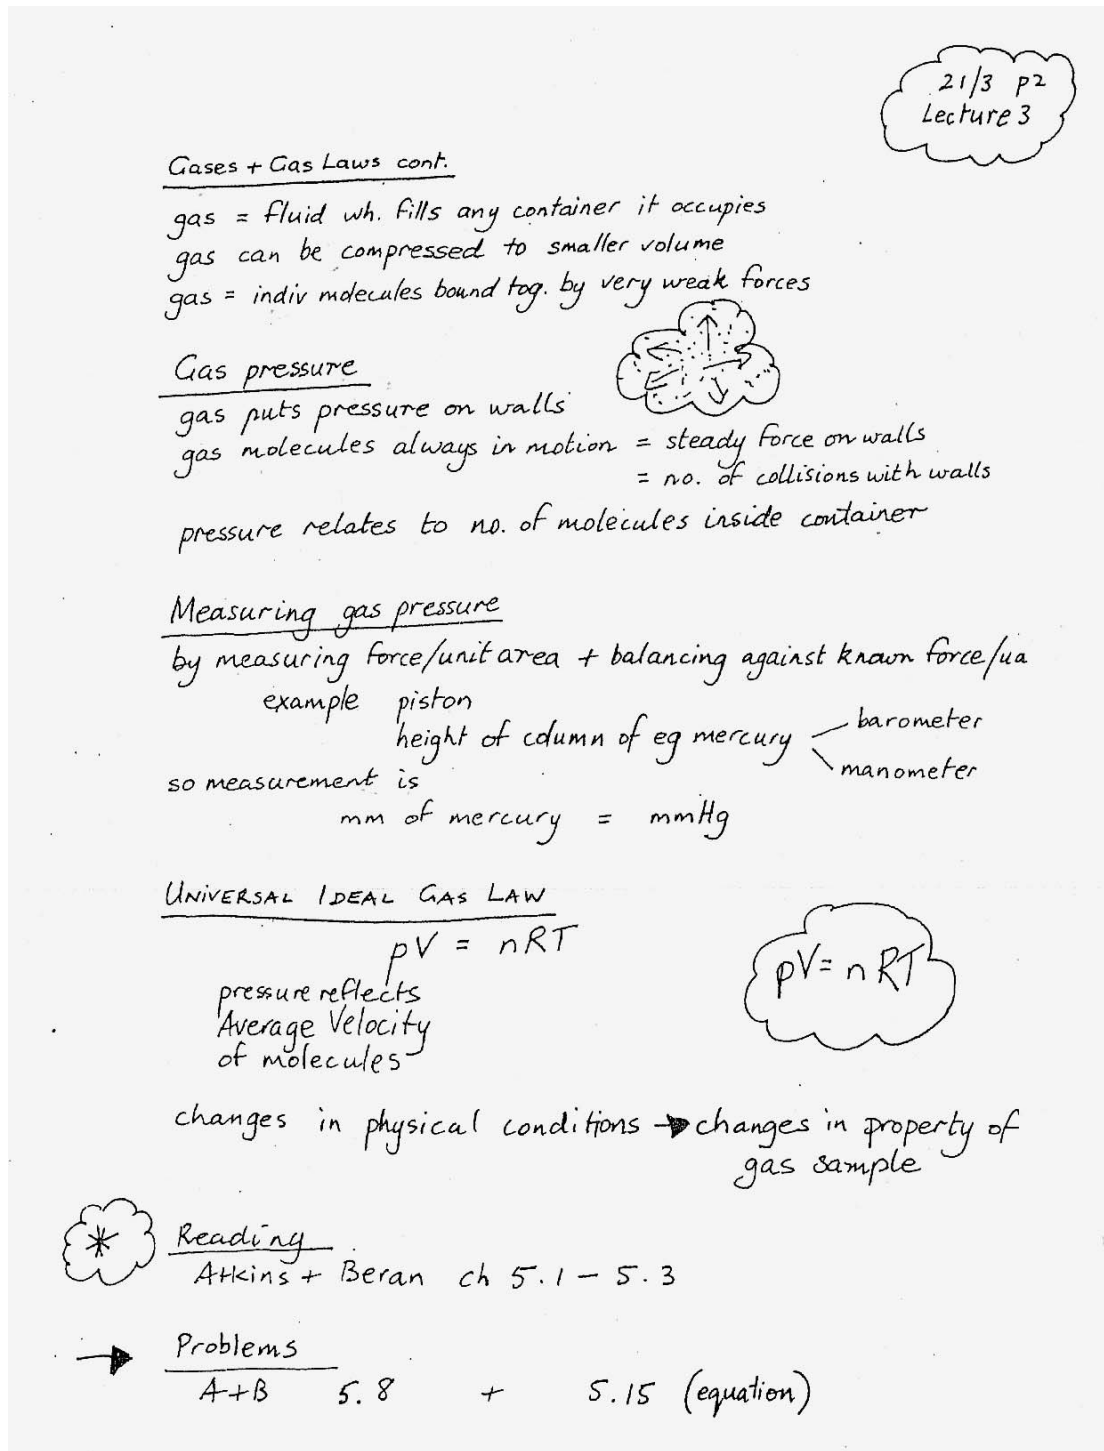 21/3 p2
Lecture 3
Gases + Gas Laws cont.
gas = fluid wh. fills any container it occupies
gas can be compressed to smaller volume
gas = indiv molecules bound tog. by very weak forces
Gas pressure
gas puts pressure on walls
gas molecules always in motion = steady force on walls
= no. of collisions with walls
pressure relates to no. of molecules inside container
Measuring gas pressure
by measuring force/unit area + balancing against known force/ua
example piston
height of column of eg mercury
barometer
manometer
so measurement is
mm of mercury = mmHg
UNIVERSAL IDEAL GAS LAW
pV = nRT
pV = nRT
pressure reflects
Average Velocity
of molecules
changes in physical conditions → changes in property of
gas sample
* Reading
Atkins + Beran ch 5.1 - 5.3
→ Problems
A+B 5.8 + 5.15 (equation)